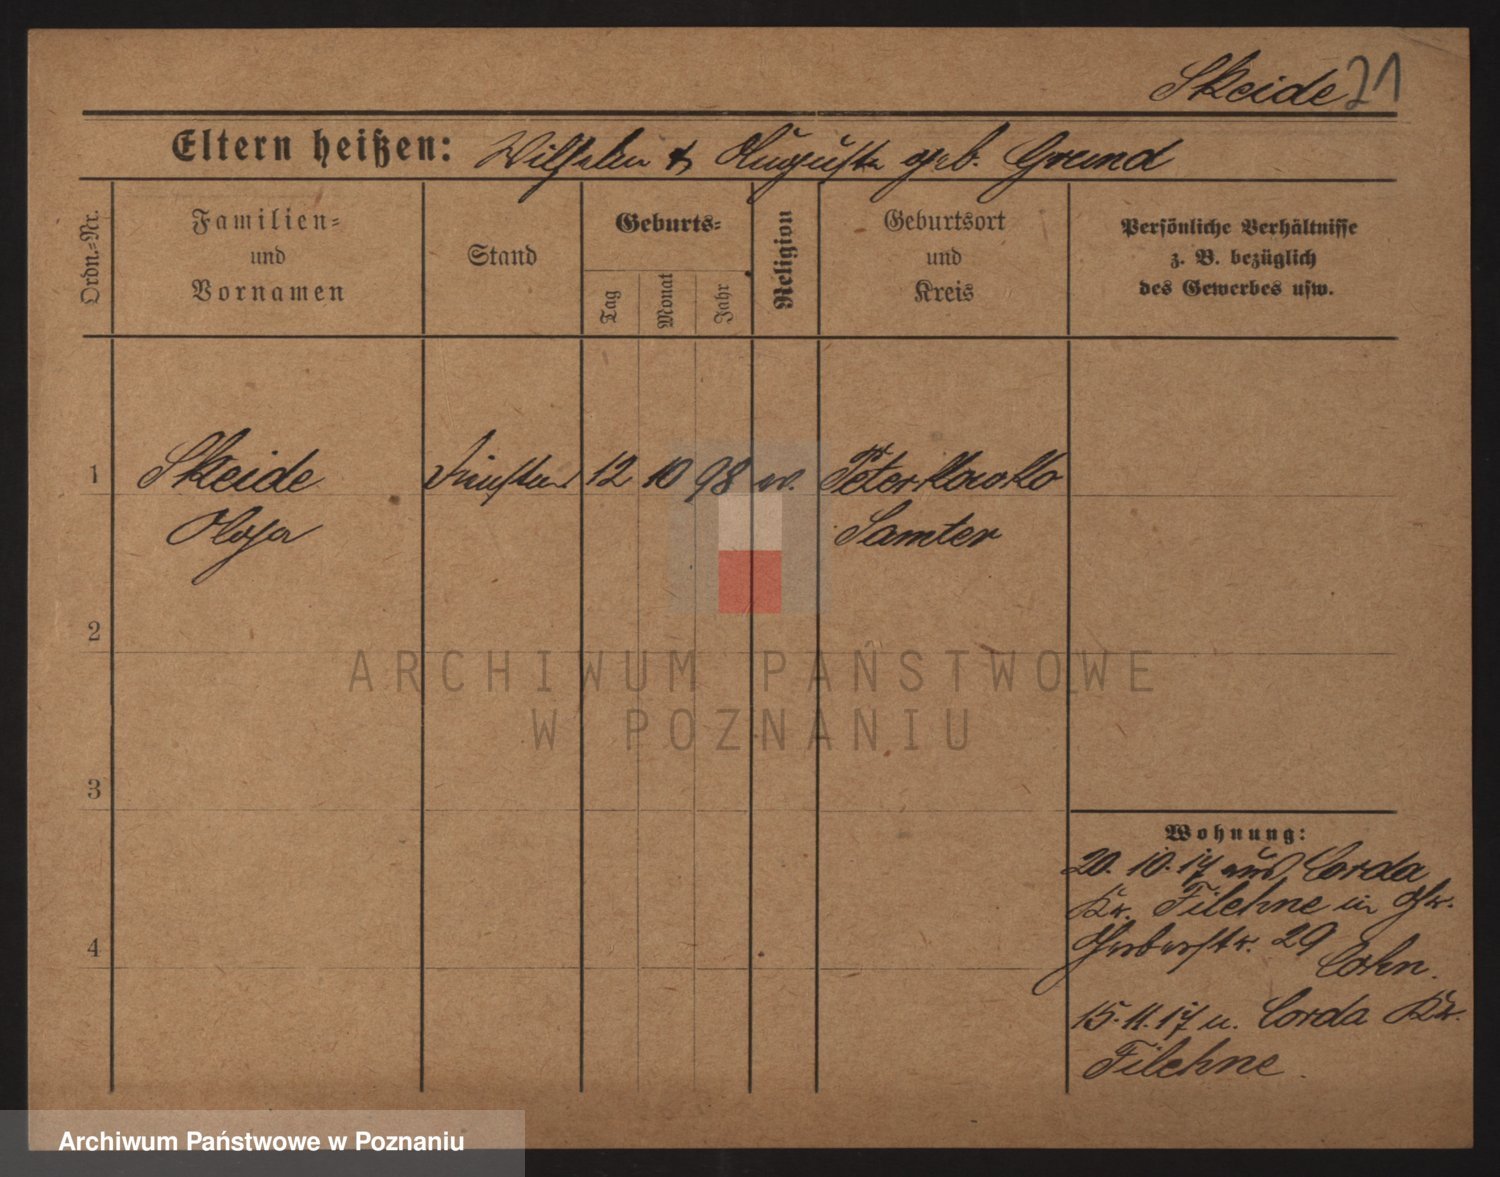 Skeide 21
Eltern heißen: Wilhelm & Auguste geb. Grund
Ordn.-Nr.
Familien-
und
Vornamen
Stand
Geburts-
Tag
Monat
Jahr
Religion
Geburtsort
und
Kreis
Persönliche Verhältnisse
z. B. bezüglich
des Gewerbes usw.
1 Skeide 12 10 98 ev. Peterkowko
Olga Samter
2
3
4
Wohnung:
20. 10. 17 aus Corda
Kr. Filehne in
Gerberstr. 29
Cohn.
15. 11. 17 n. Corda Kr.
Filehne.
ARCHIWUM PAŃSTWOWE
W POZNANIU
Archiwum Państwowe w Poznaniu